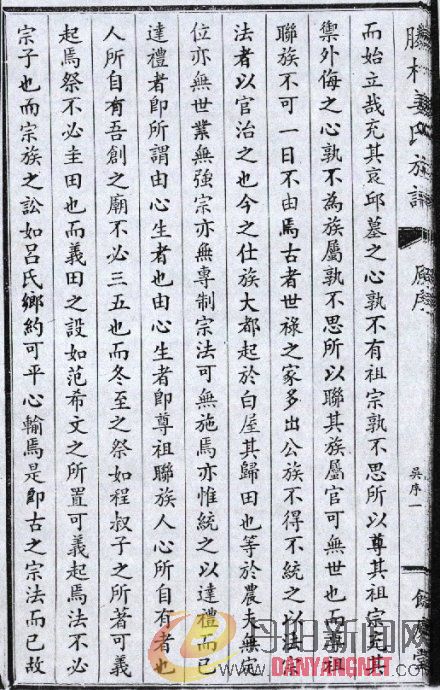 滕村姜氏族譜
原序
吳序一
而始立哉充其哀邱墓之心孰不有祖宗孰不思所以尊其祖宗充其
禦外侮之心孰不為族屬孰不思所以聯其族屬官可無世也而尊祖
聯族不可一日不由焉古者世祿之家多出公族不得不統之以法宗
法者以官治之也今之仕族大都起於白屋其歸田也等於農夫無定
位亦無世業無強宗亦無專制宗法可無施焉亦惟統之以達禮而已
達禮者即所謂由心生者也由心生者即尊祖聯族人心所自有者也
人所自有吾創之廟不必三五也而冬至之祭如程叔子之所著可義
起焉祭不必圭田也而義田之設如范希文之所置可義起焉法不必
宗子也而宗族之訟如呂氏鄉約可平心輸焉是即古之宗法而已故
丹阳新闻网
DANYANG.NET